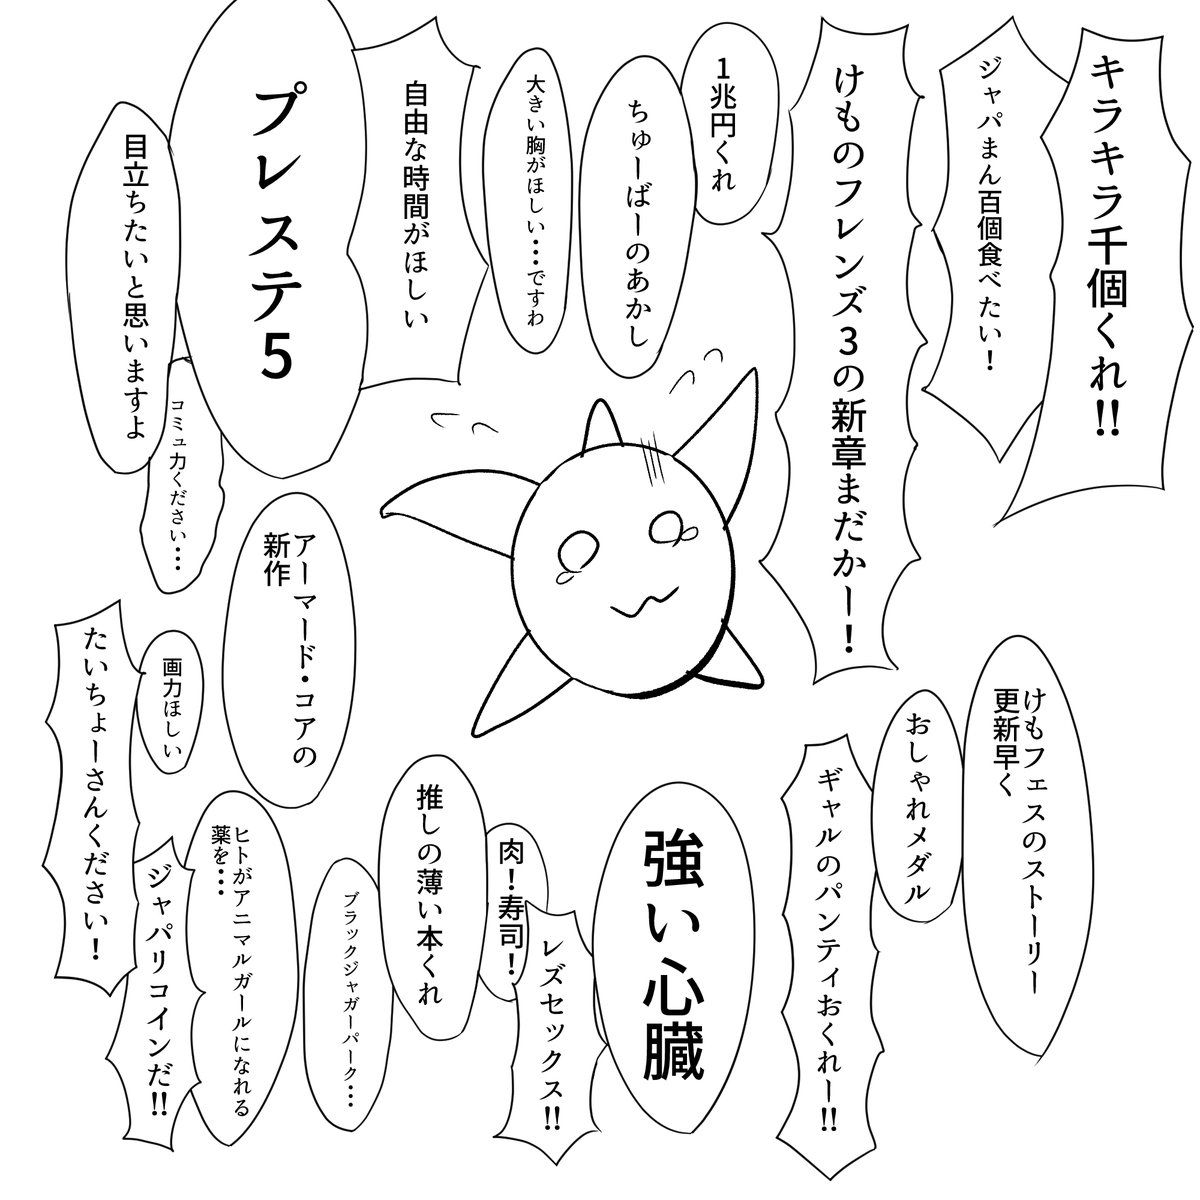 キラキラ千個くれ!!
ジャパまん百個食べたい！
けものフレンズ3の新章まだかー！
1兆円くれ
ちゅーばーのあかし
大きい胸がほしい…ですわ
自由な時間がほしい
プレステ5
目立ちたいと思いますよ
コミュ力ください…
アーマード・コアの
新作
画力ほしい
たいちょーさんください！
けもフェスのストーリー
更新早く
おしゃれメダル
ギャルのパンティおくれー!!
強い心臓
レズセックス!!
肉！寿司！
推しの薄い本くれ
ブラックジャガーパーク…
ヒトがアニマルガールになれる
薬を…
ジャパリコインだ!!